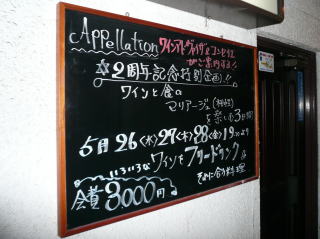 Appellation ワインアドヴァイザー&コンセイエ
がご案内する!!
☆2周年記念特別企画!!
ワインと食の
マリアージュ(相性)
を楽しむ3日間
5月26(水)27(木)28(金)19:00より
いろいろな
ワインをフリードリンク&
会費3000円 それに合う料理